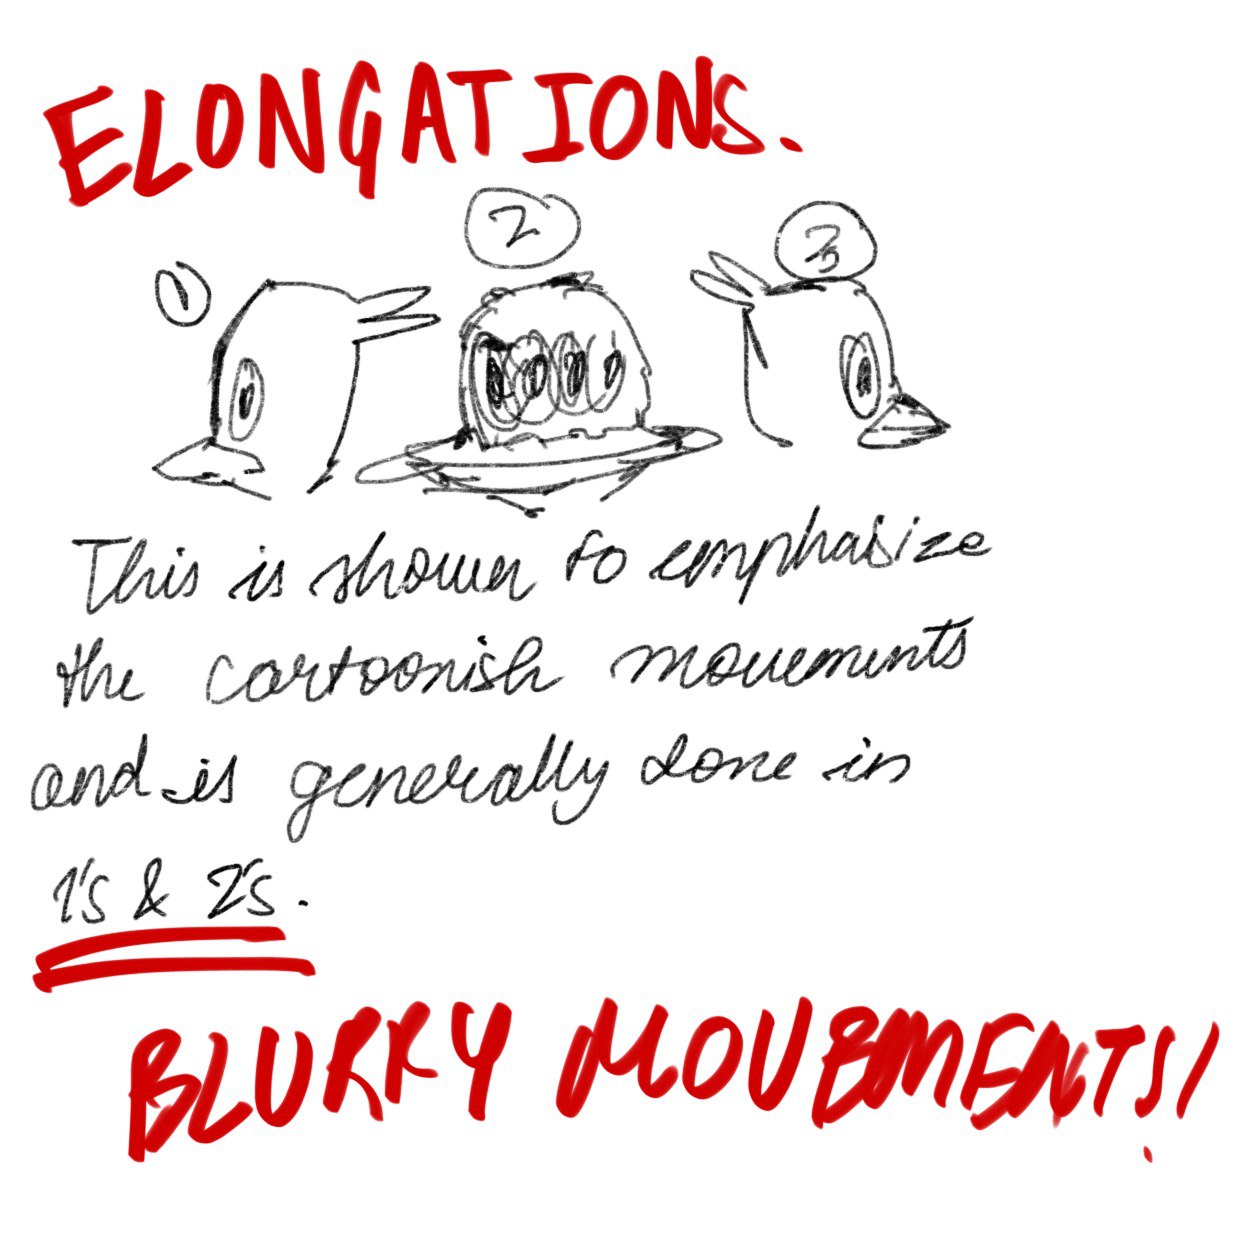 ELONGATIONS.
1 2 3
This is shown to emphasize
the cartoonish movements
and is generally done in
1's & 2's.
BLURRY MOVEMENTS!